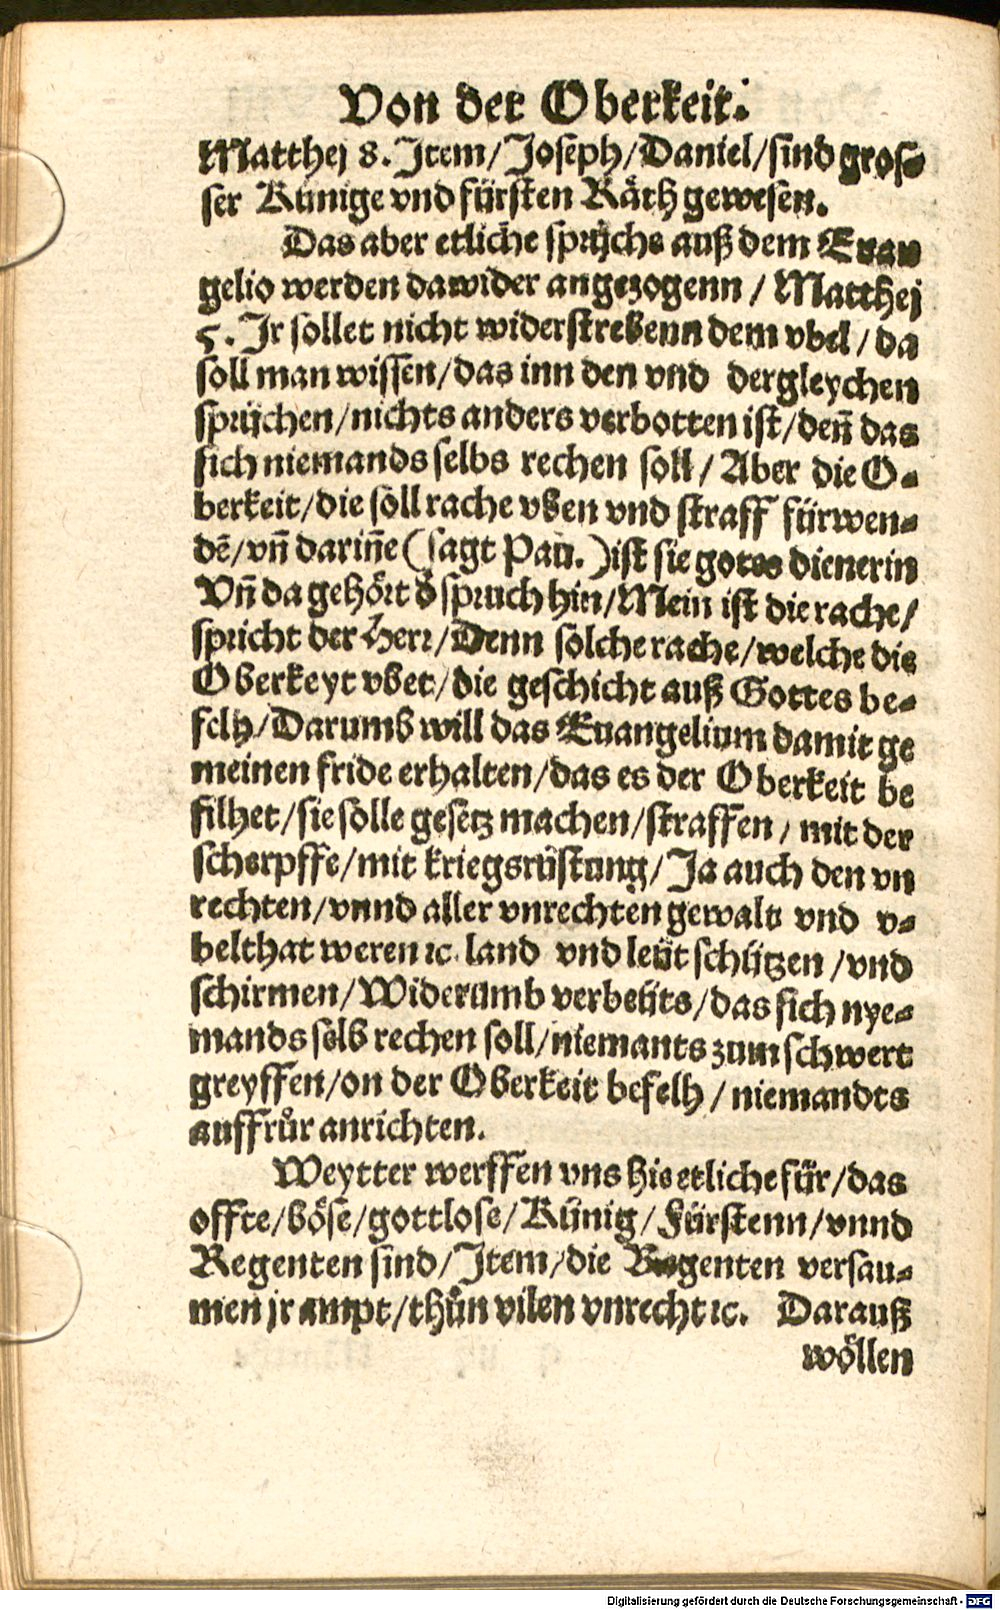 Von der Oberkeit.
Matthej 8. Item/Joseph/Daniel/sind gros-
ser Künige vnd fürsten Räth gewesen.
Das aber etliche sprüche auß dem Euan
gelio werden dawider angezogenn / Matthej
5. Ir sollet nicht widerstrebenn dem vbel / da
soll man wissen/das inn den vnd dergleychen
sprüchen/nichts anders verbotten ist/deñ das
sich niemands selbs rechen soll / Aber die O-
berkeit/die soll rache vben vnd straff fürwen-
dẽ/vñ dariñe (sagt Pau.) ist sie gotes dienerin
Vñ da gehört d̕ spruch hin/Mein ist die rache/
spricht der Herr/Denn solche rache/welche die
Oberkeyt vbet/die geschicht auß Gottes be-
felh/Darumb will das Euangelium damit ge
meinen fride erhalten/das es der Oberkeit be
filhet/sie solle gesetz machen/straffen / mit der
scherpffe/mit kriegsrüstung/Ja auch den vn
rechten/vnnd aller vnrechten gewalt vnd v-
belthat weren ꝛc. land vnd leüt schützen /vnd
schirmen/Widerumb verbeüts/das sich nye-
mands selb rechen soll/niemants zum schwert
greyffen/on der Oberkeit befelh / niemandts
auffrůr anrichten.
Weytter werffen vns hie etliche für/das
offte/böse/gottlose/Künig/Fürstenn/vnnd
Regenten sind/Item/die Regenten versau-
men jr ampt/thůn vilen vnrecht ꝛc. Darauß
wöllen
Digitalisierung gefördert durch die Deutsche Forschungsgemeinschaft - DFG